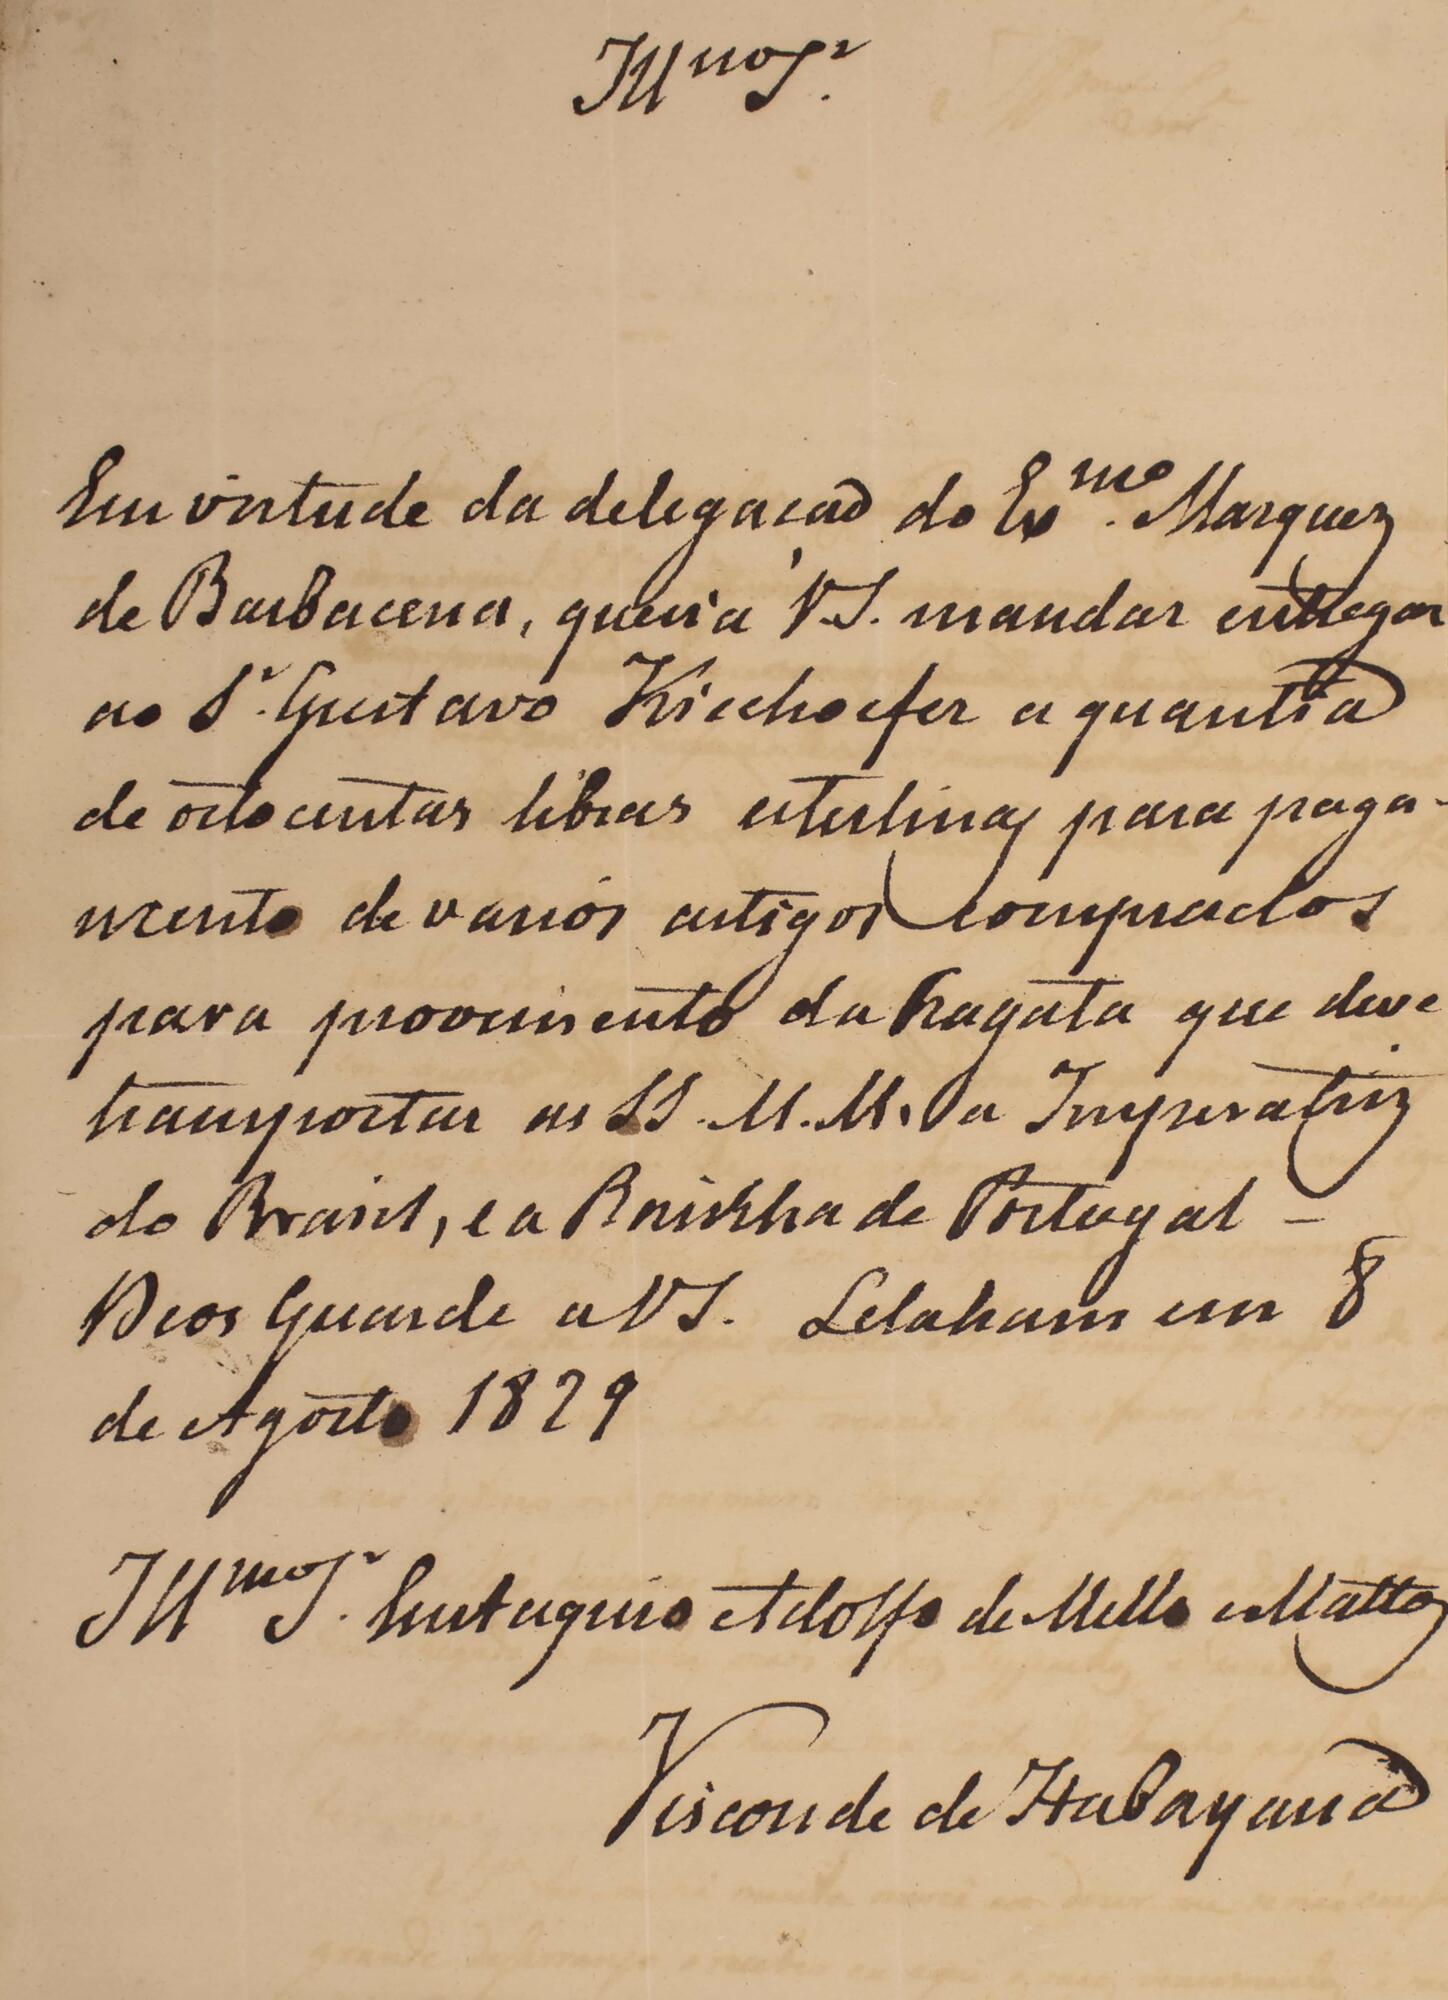 Illmo Sr.
Em virtude da delegação do Exmo. Marquez
de Barbacena, queira V.S. mandar entregar
ao Sr. Gustavo Kieckhoefer a quantia
de oitocentas libras esterlinas para paga-
mento de varios artigos comprados
para provimento da Fragata que deve
transportar as SS. M.M. a Imperatriz
do Brasil, e a Rainha de Portugal –
Deos Guarde a V S. Lelaham em 8
de Agosto 1829
Illmo Sr. Eustaquio Adolfo de Mello e Mattos
Visconde de Itabayana